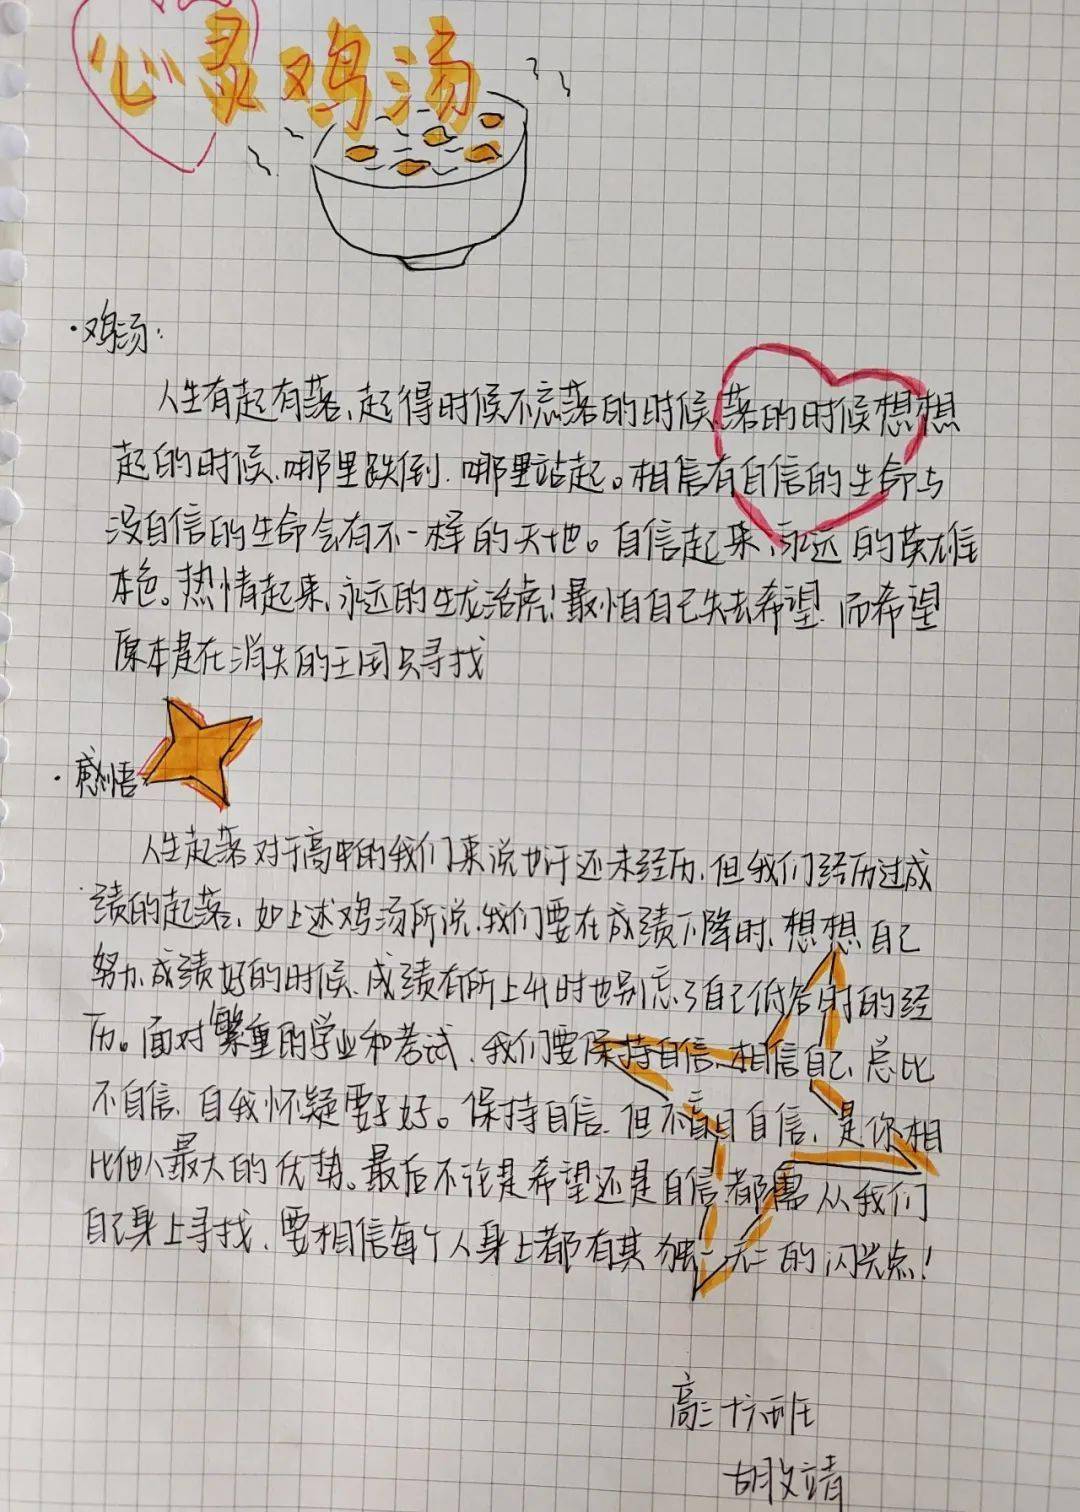 心灵鸡汤
·鸡汤:
人生有起有落、起得时候不忘落的时候、落的时候想想
起的时候、哪里跌倒、哪里站起。相信有自信的生命与
没自信的生命会有不一样的天地。自信起来、永远的英雄
本色。热情起来、永远的生龙活虎!最怕自己失去希望、而希望
原本是在消失的王国只寻找
·感悟
人生起落对于高中的我们来说也许还未经历、但我们经历过成
绩的起落、如上述鸡汤所说、我们要在成绩下降时、想想自己
努力、成绩好的时候、成绩有所上升时也别忘了自己低谷时的经
历。面对繁重的学业和考试、我们要保持自信、相信自己、总比
不自信、自我怀疑要好。保持自信、但不盲目自信、是你相
比他人最大的优势。最后不论是希望还是自信都需从我们
自己身上寻找、要相信每个人身上都有其独一无二的闪光点!
高三十六班
胡文靖